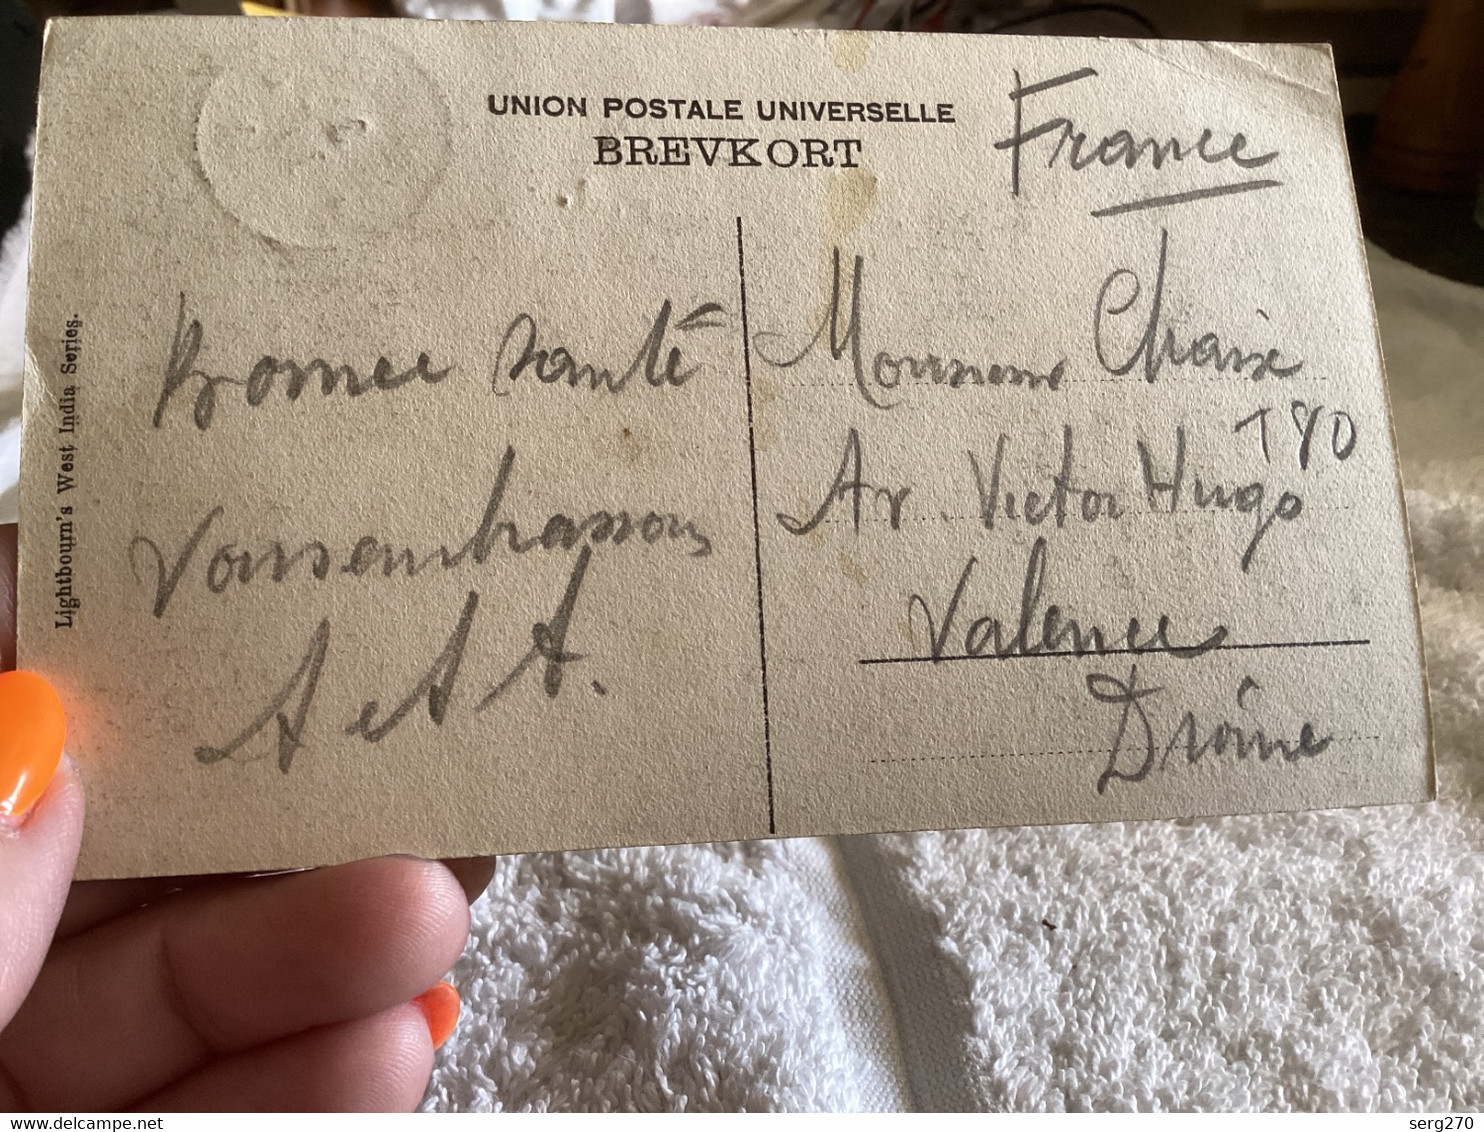 UNION POSTALE UNIVERSELLE
BREVKORT
France
Lightbourn's West India Series.
Bonne santé
Vous embrassons
A et A A.
Monsieur Chaix
Av. Victor Hugo 180
Valence
Drôme
delcampe.net
serg270